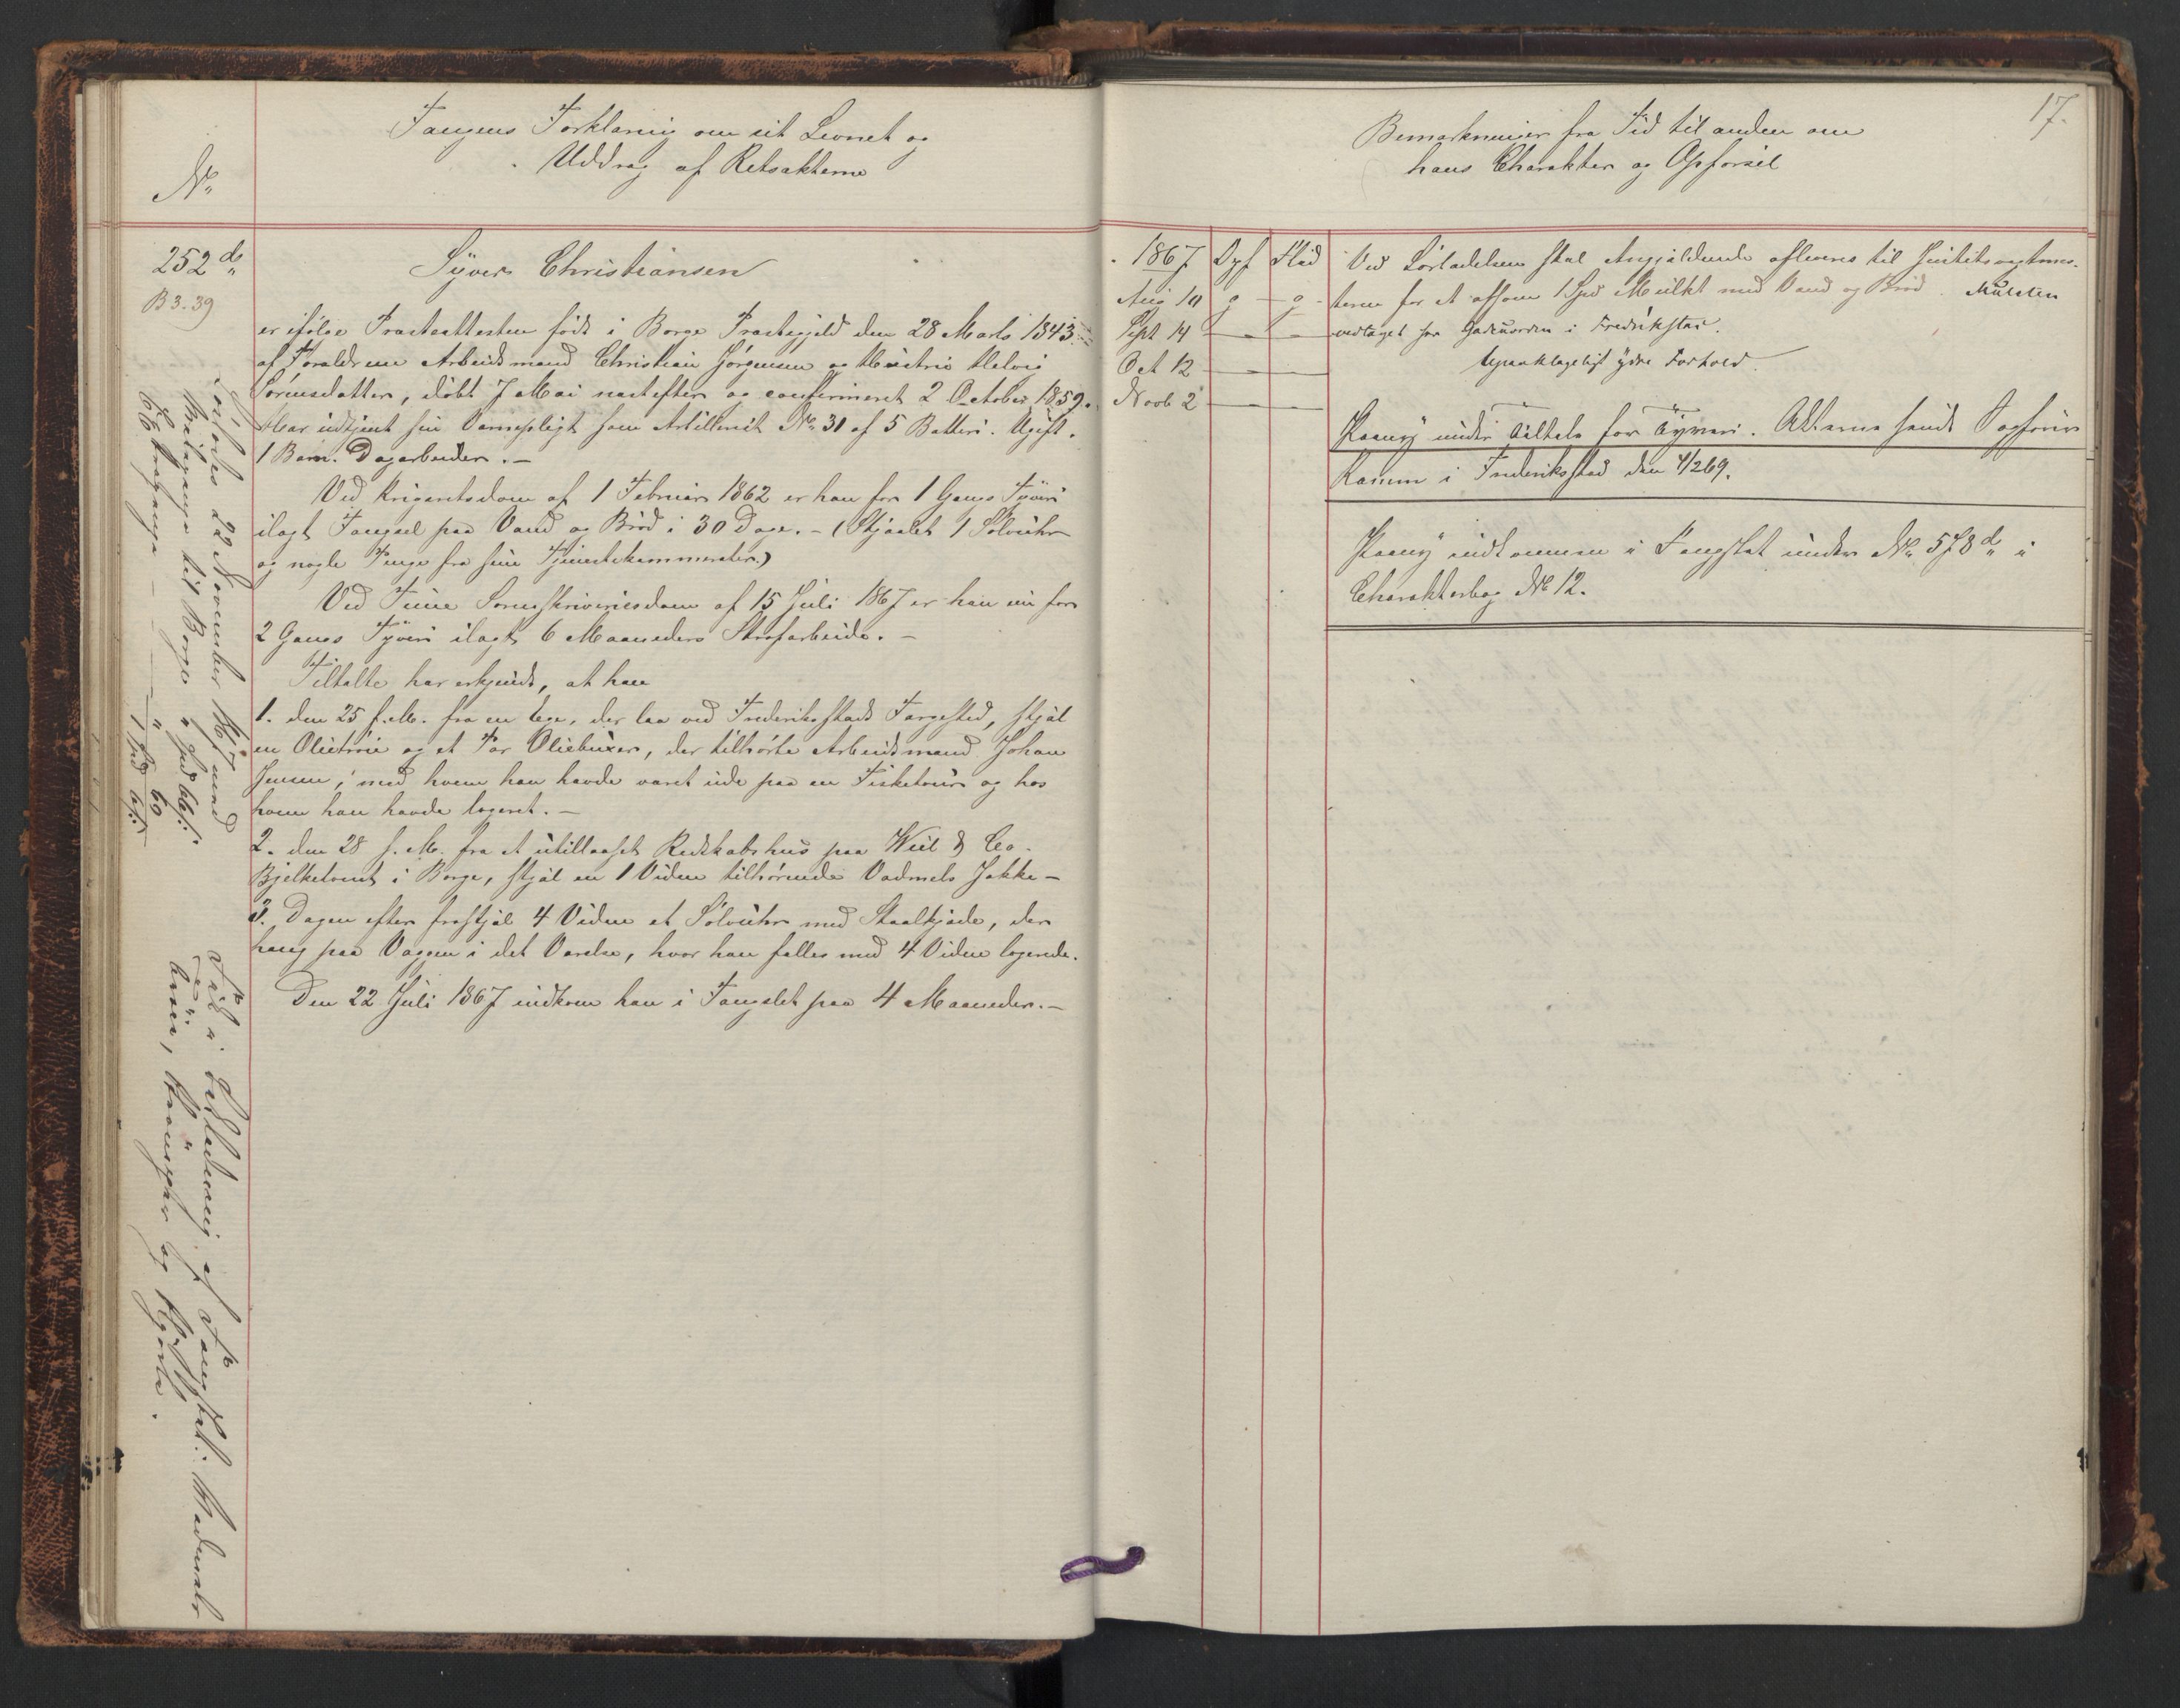 Fangens Forklaring om sit Levnet og
Uddrag af Retsakterne
No
252 d
B 3. 39
Syver Christiansen
er ifølge Præsteattesten født i Borge Præstegjeld den 28 Marts 1843
af Forældrene Arbeidsmand Christian Jørgensen og Helvig
Sørensdatter, døbt 7 Mai næstefter og confirmeret 2 October 1859.
Har udtjent sin Værnepligt som Artillerist No 31 af 5 Batteri. Ugift.
1 Barn. Dagarbeider. -
Ved Krigsretsdom af 1 Februar 1862 er han for 1 Gangs Tyveri
ilagt Fængsel paa Vand og Brød i 30 Dage. - (Stjaalet 1 Sølvuhr
og nogle Penge fra sine Tjenestekammerater.)
Ved Tune Sorenskriveriesdom af 15 Juli 1867 er han nu for
2 Gangs Tyveri ilagt 6 Maaneders Strafarbeide. -
Tiltalte har erkjendt, at han
1. den 25 f. M. fra en Ege, der laa ved Frederiksstads Færgested, stjal
en Olietrøie og et Par Oliebuxer, der tilhørte Arbeidsmand Johan
Jensen, med hvem han havde været ude paa en Fisketour og hos
hvem han havde logeret. -
2. den 28 f. M. fra et utillaaset Redskabshus paa Wiel & Co.
Bjelketomt i Borge, stjal en 1 Vidne tilhørende Vadmels Jakke -
3. Dagen efter frastjal 4 Vidne et Sølvuhr med Staalkjæde, der
hang paa Væggen i det Værelse, hvor han fælles med 4 Vidne logerede.
Den 22 Juli 1867 indkom han i Fængslet paa 4 Maaneder. -
Løslades 22 November 1867 med
til Borge
60
Fik i Beklædning af Fængslet: Vadmels
trøie, og Skjorte.
17.
Bemærkninger fra Tid til anden om
hans Charakter og Opførsel
1867 Opf Flid
Aug 10 g - g
Sept 14
Oct 12
Novb 2
Ved Løsladelsen skal Angjældende afleveres til
terne for at afsone 1 Spd Mulkt med Vand og Brød. Mulkten
vedtaget for Gadeuorden i Fredrikstad.
Upaaklageligt ydre Forhold.
Paany under Tiltale for Tyveri. Akterne sendt Sagfører
i Frederiksstad den 4/2 69.
Paany indkommen i Fængslet under No 578 d i
Charakterbog No 12.